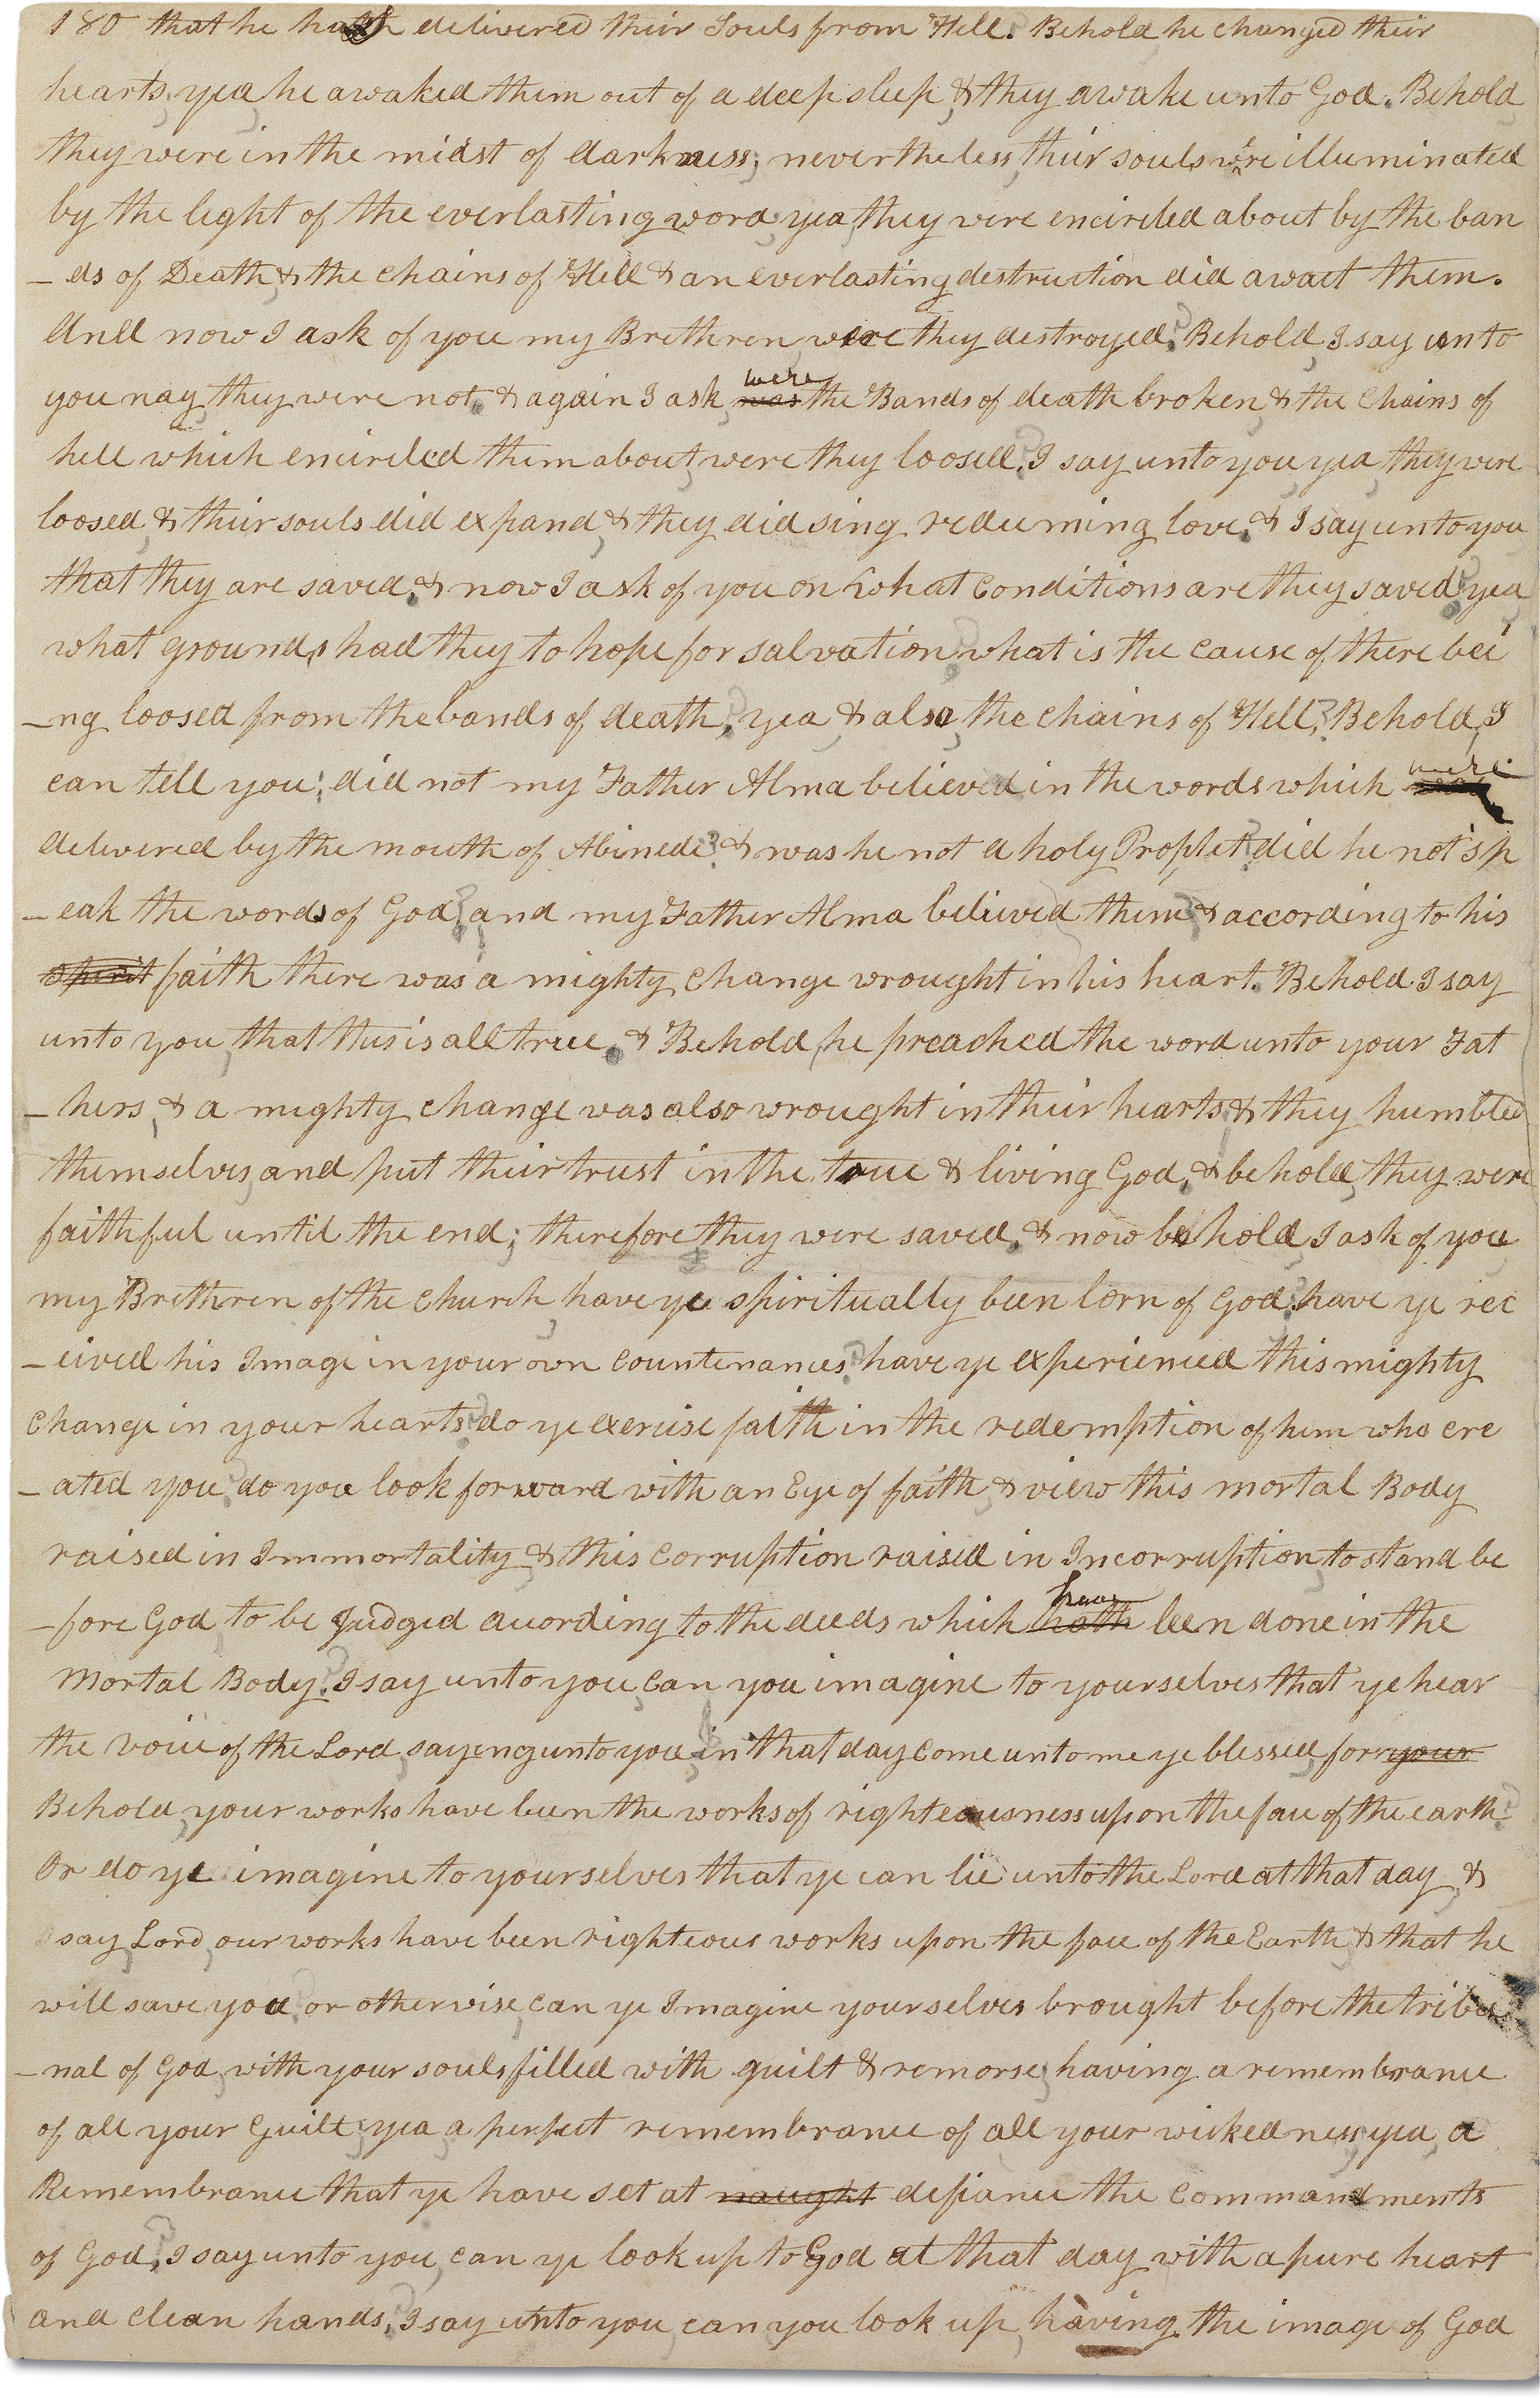 180 that he hath delivered their Souls from Hell. Behold he changed their
hearts; yea, he awaked them out of a deep sleep, & they awake unto God. Behold,
they were in the midst of darkness; nevertheless, their souls were illuminated
by the light of the everlasting word; yea, they were encircled about by the ban
-ds of Death, & the chains of Hell & an everlasting destruction did await them.
And now I ask of you my Brethren, were they destroyed? Behold, I say unto
you nay, they were not. & again I ask, was were the Bands of death broken, & the Chains of
hell which encircled them about, were they loosed? I say unto you, yea, they were
loosed, & their souls did expand, & they did sing redeeming love. & I say unto you
that they are saved. & now I ask of you on what Conditions are they saved? yea,
what grounds had they to hope for salvation? what is the cause of there bei
-ng loosed from the bands of death? yea, & also, the chains of Hell? Behold, I
can tell you; did not my Father Alma believed in the words which were
delivered by the mouth of Abinedi? & was he not a holy Prophet? did he not sp
-eak the words of God? and my Father Alma believed them? & according to his
spirit faith there was a mighty change wrought in his heart. Behold I say
unto you, that this is all true. & Behold, he preached the word unto your Fat
-hers, & a mighty change was also wrought in their hearts, & they humbled
themselves, and put their trust in the true & living God. & behold, they were
faithful until the end; therefore they were saved. & now behold, I ask of you,
my Brethren of the Church, have ye spiritually been born of God? have ye rec
-eived his Image in your own countenances? have ye experienced this mighty
Change in your hearts? do ye exercise faith in the redemption of him who cre
-ated you? do you look forward with an Eye of faith, & view this mortal Body
raised in Immortality, & this Corruption raised in Incorruption, to stand be
-fore God to be Judged according to the deeds which hath have been done in the
Mortal Body? I say unto you, Can you imagine to yourselves that ye hear
the voice of the Lord, sayeng unto you, in that day Come unto me ye blessed, for your
Behold, your works have been the works of righteousness upon the face of the earth?
Or do ye imagine to yourselves that ye can lie unto the Lord at that day, &
say, Lord, our works have been righteous works upon the face of the Earth, & that he
will save you? or otherwise, can ye Imagine yourselves brought before the tribu
-nal of God, with your souls filled with guilt & remorse; having a remembrance
of all your Guilt; yea, a perfect remembrance of all your wickedness; yea, a
Remembrance that ye have set at naught defiance the commandments
of God? I say unto you, can ye look up to God at that day with a pure heart
and clean hands? I say unto you, can you look up, having the image of God